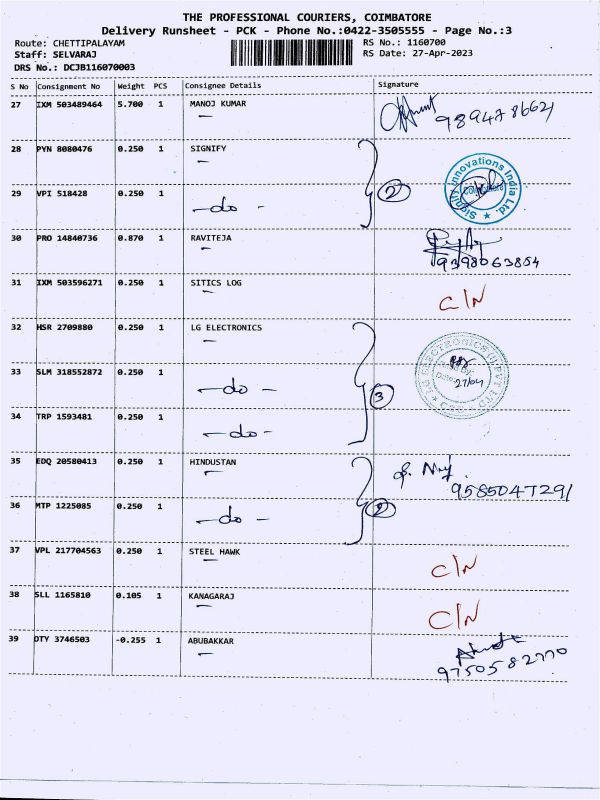 THE PROFESSIONAL COURIERS, COIMBATORE
Delivery Runsheet - PCK - Phone No.:0422-3505555 - Page No.:3
Route: CHETTIPALAYAM
RS No.: 1160700
Staff: SELVARAJ
RS Date: 27-Apr-2023
DRS No.: DCJB116070003
S No Consignment No Weight PCS Consignee Details Signature
27 IXM 503489464 5.700 1 MANOJ KUMAR
28 PYN 8080476 0.250 1 SIGNIFY
Signify Innovations India Ltd.
29 VPI 518428 0.250 1 -do- 2
30 PRO 14840736 0.870 1 RAVITEJA
9398063854
31 IXM 503596271 0.250 1 SITICS LOG C/N
32 HSR 2709880 0.250 1 LG ELECTRONICS
33 SLM 318552872 0.250 1 -do- 3 27/04
34 TRP 1593481 0.250 1 -do-
35 EDQ 20580413 0.250 1 HINDUSTAN
9585047291
36 MTP 1225085 0.250 1 -do- 2
37 VPL 217704563 0.250 1 STEEL HAWK C/N
38 SLL 1165810 0.105 1 KANAGARAJ C/N
39 DTY 3746503 -0.255 1 ABUBAKKAR
9750582770